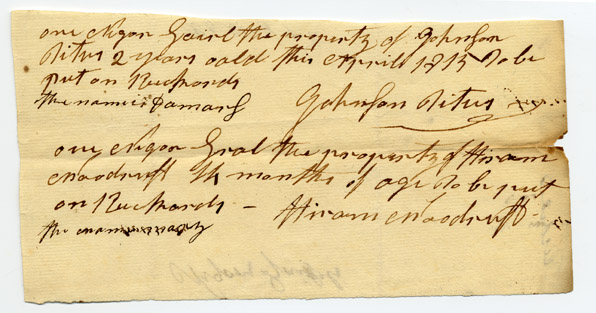 one Nigor Gairl the property of Johnson
Titus 2 years oald this April 1813 To be
put on Reckords
the name is Damars Johnson Titus
one Nigor Gral the property of Hiram
Woodruff months of age To be put
on Reckords - Hiram Woodruff
the name mary